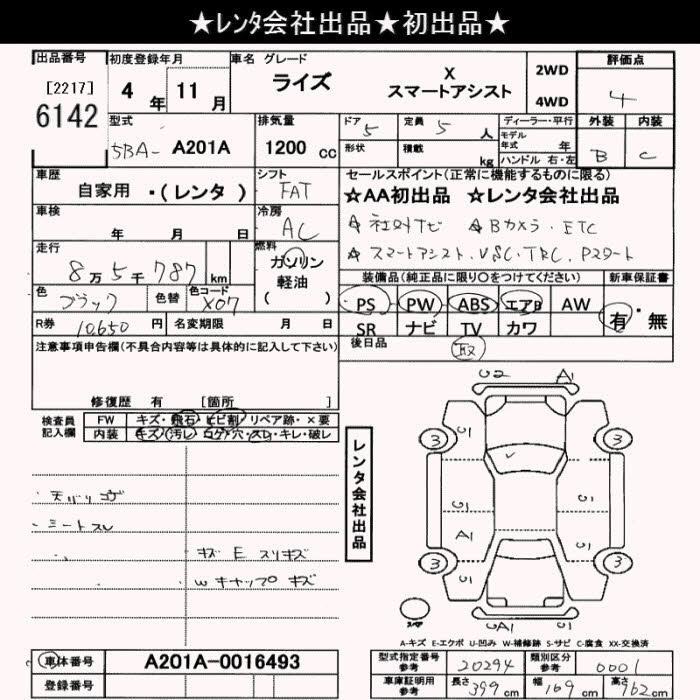 ★レンタ会社出品★初出品★
出品番号 初度登録年月 車名 グレード 評価点
[2217] 4 年 11 月 ライズ X スマートアシスト 2WD 4WD 4
6142
型式 排気量 ドア 5 定員 5 人 ディーラー・平行 外装 内装
5BA- A201A 1200 cc 形状 積載 kg モデル年式 年 B C
ハンドル 右・左
車歴 シフト セールスポイント(正常に機能するものに限る)
自家用 ・(レンタ) FAT ☆AA初出品 ☆レンタ会社出品
車検 冷房 ☆社外ナビ ☆Bカメラ・ETC
年 月 日 AC ☆スマートアシスト.VSC・TRC.Pスタート
走行 燃料
8万5千787 km ガソリン 軽油 ( ) 装備品(純正品に限り○をつけてください) 新車保証書
色 色替 色コード PS PW ABS エアB AW 有・無
ブラック X07 SR ナビ TV カワ
R券 10,650 円 名変期限 月 日 後日品 取
注意事項申告欄(不具合内容等は具体的に記入して下さい)
修復歴 有 [箇所 ]
検査員 FW キズ・飛石・ヒビ割 リペア跡・×要
記入欄 内装 キズ・汚レ・コゲ・穴・スレ・キレ・破レ
レンタ会社出品
U2 A1
3 3
U1 U1
U1 U1
A1 U1
3 3
U1 U1
UA1 U1
天バリコゲ
シートスレ
キズ E スリキズ
Wキャップ キズ
A-キズ E-エクボ U-凹み W-補修跡 S-サビ C-腐食 XX-交換済
車体番号 A201A-0016493 型式指定番号 参考 20294 類別区分 参考 0001
登録番号 車庫証明用 参考 長さ 399 cm 幅 169 cm 高さ 162 cm